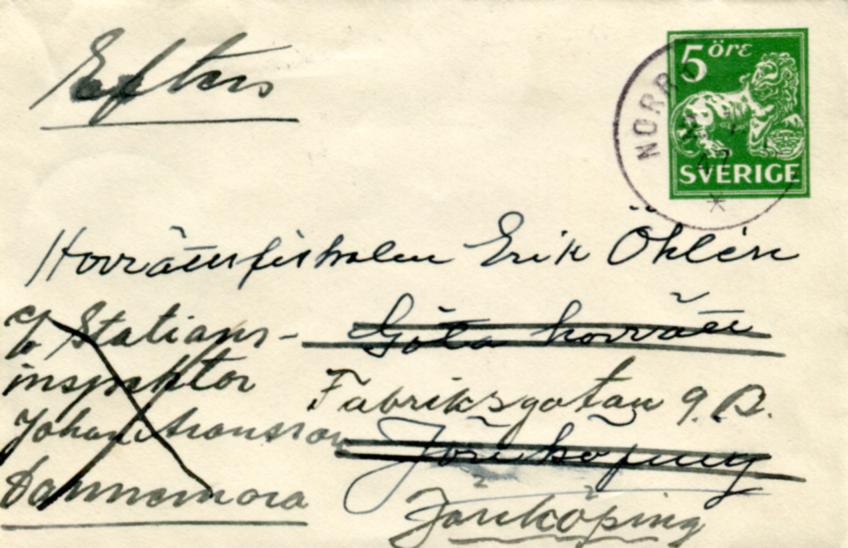 Efters
5 öre
SVERIGE
NORR
Hovrättsfiskalen Erik Öhlén
Göta hovrätt
c/o Stations-
inspektor
Johan Aronsson
Dannemora
Fabriksgatan 9 B.
Jönköping
Jönköping